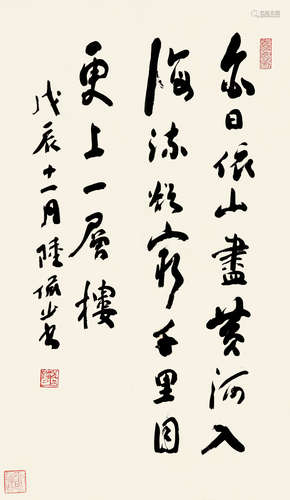 白日依山盡黃河入
海流欲窮千里目
更上一層樓
戊辰十一月陸儼少書